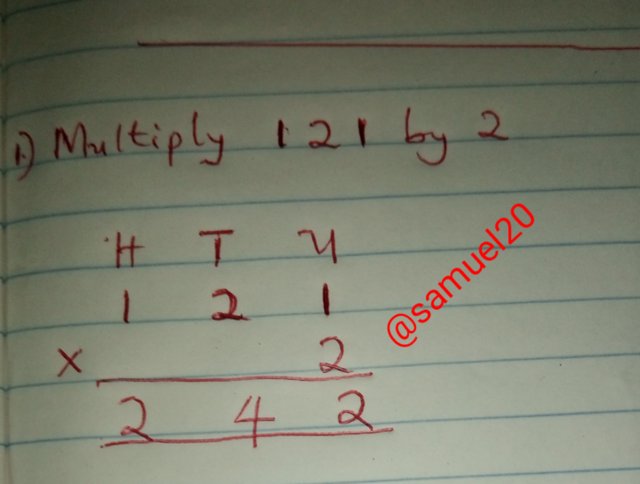 1.) Multiply 121 by 2
H T U
1 2 1
@samuel20
x 2
2 4 2